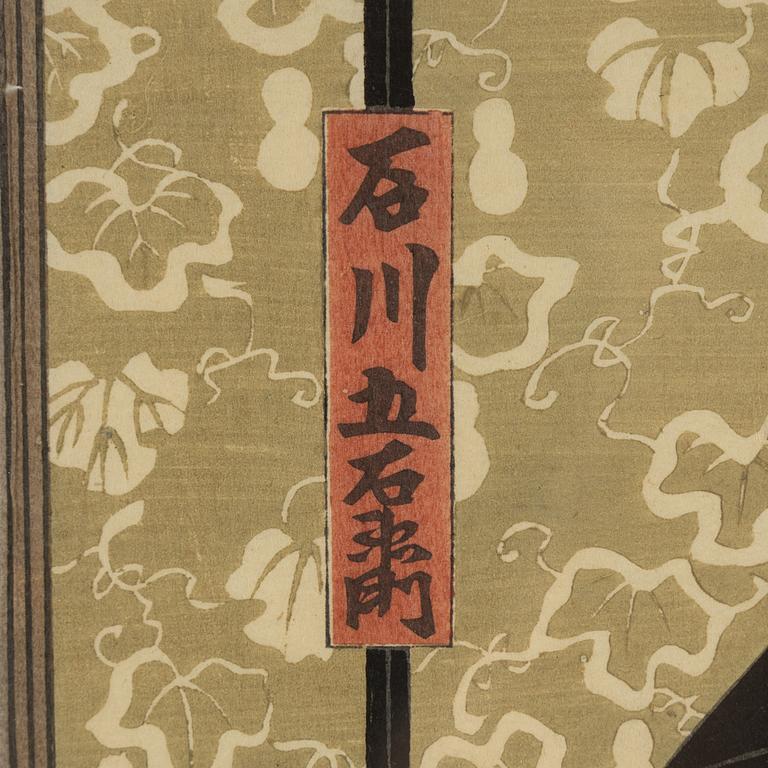 石川五右衛門